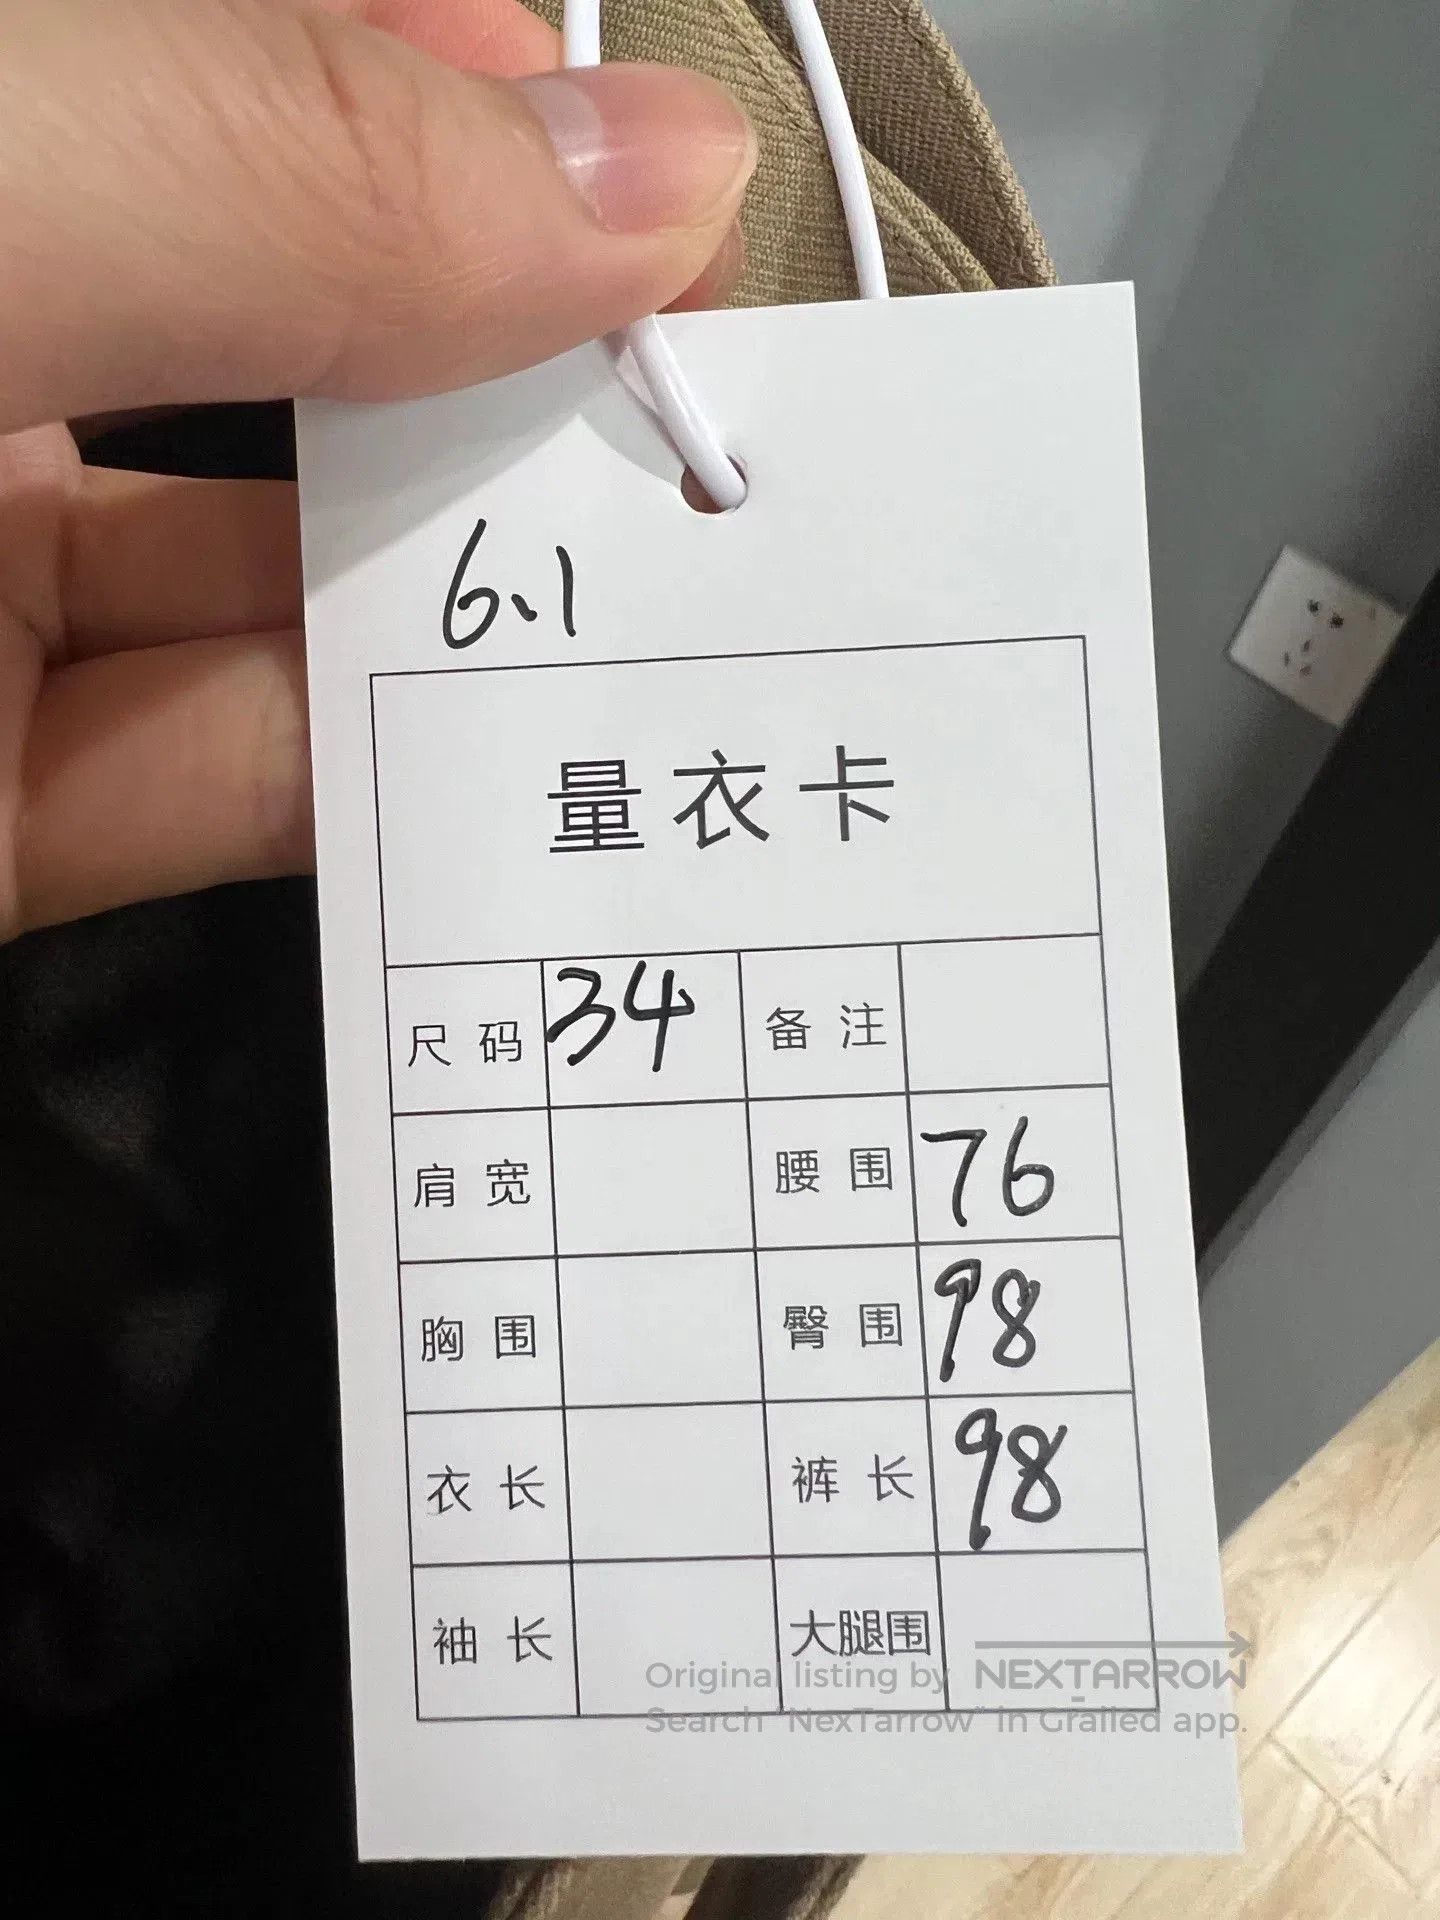 6.1
量衣卡
尺码 34 备注
肩宽 腰围 76
胸围 臀围 98
衣长 裤长 98
袖长 大腿围
Original listing by NEXTARROW
Search "NexTarrow" in Grailed app.